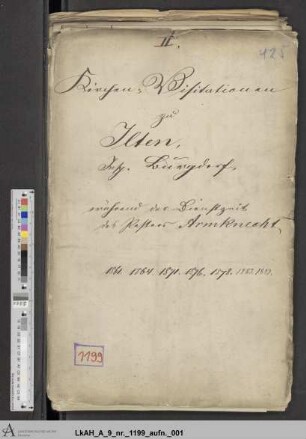 II.
125
Kirchen-Visitationen
zu
Ilten,
Insp. Burgdorf,
während der Dienstzeit
des Pastors Armknecht.
1861. 1864. 1871. 1876. 1878.
1199
LkAH_A_9_nr._1199_aufn._001